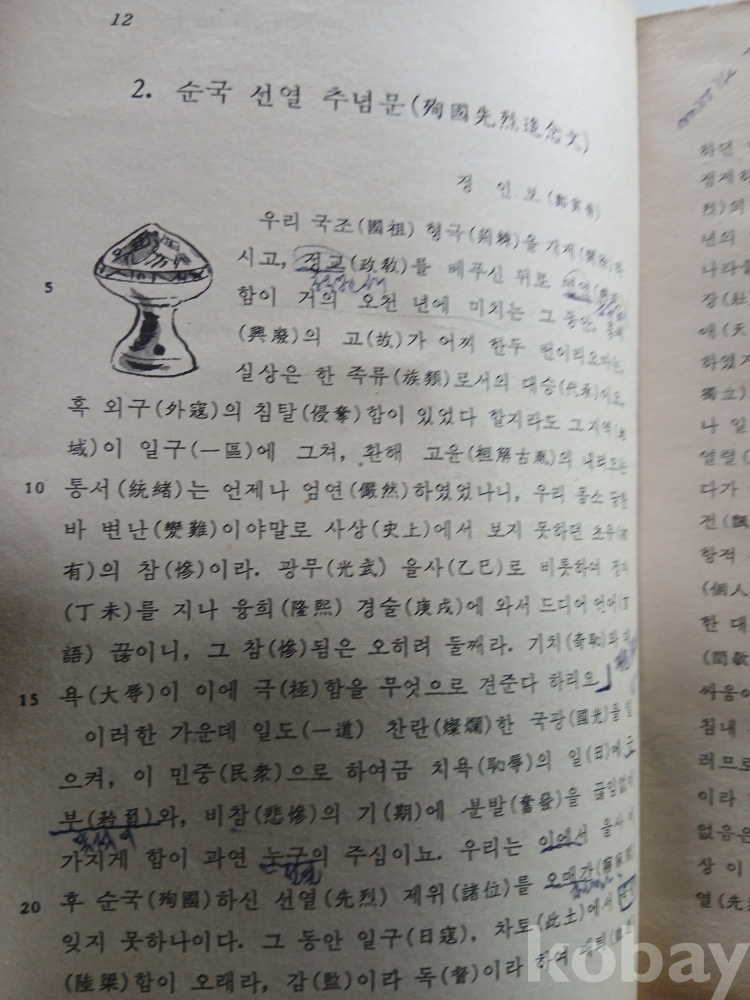 12
2. 순국 선열 추념문(殉國先烈追念文)
정 인 보(鄭寅普)
우리 국조(國祖) 형극(荊棘)을 개제
시고, 정교(政敎)를 베푸신 뒤로
5
함이 거의 오천 년에 미치는 그 동안,
(興廢)의 고(故)가 어찌 한두 번이리오마는,
실상은 한 족류(族類)로서의 대승(代承)이오,
혹 외구(外寇)의 침탈(侵奪)함이 있었다 할지라도 그 지역
域)이 일구(一區)에 그쳐, 환해 고윤(桓解古胤)의 내려오는
10 통서(統緖)는 언제나 엄연(儼然)하였었나니, 우리 몸소 당한
바 변난(變難)이야말로 사상(史上)에서 보지 못하던 초유
有)의 참(慘)이라. 광무(光武) 을사(乙巳)로 비롯하여 정미
(丁未)를 지나 융희(隆熙) 경술(庚戌)에 와서 드디어 언어(言
語) 끊이니, 그 참(慘)됨은 오히려 둘째라. 기치(奇恥)와
15 욕(大辱)이 이에 극(極)함을 무엇으로 견준다 하리오
이러한 가운데 일도(一道) 찬란(燦爛)한 국광(國光)을 일
으켜, 이 민중(民衆)으로 하여금 치욕(恥辱)의 일(日)에
부와, 비참(悲慘)의 기(期)에 분발(奮發)을 끊임없이
가지게 함이 과연 누구의 주심이뇨. 우리는 이에서 을사
20 후 순국(殉國)하신 선열(先烈) 제위(諸位)를 오매간
잊지 못하나이다. 그 동안 일구(日寇), 차토(此土)에서
(陸梁)함이 오래라, 감(監)이라 독(督)이라 하여
하던
정제하
烈)의
년의
나라를
장(壯
애(天
하였거
獨立)
나 일
열렬(
다가
전(
항적
(個人
한 대
싸움이
침내
러므로
이라
없음은
상 이
열(先
kobay